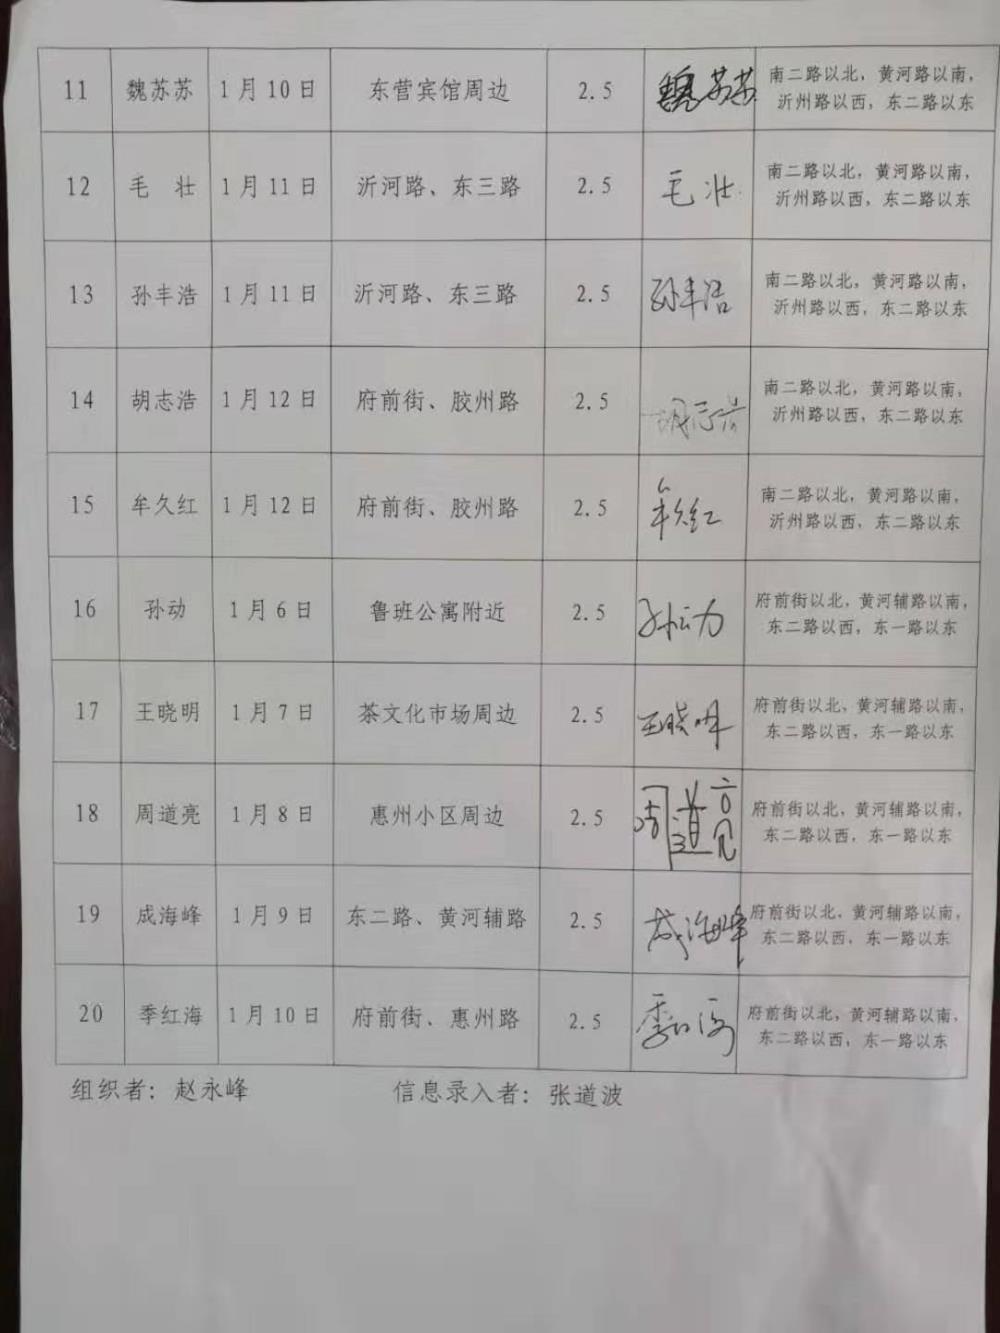 11 魏苏苏 1月10日 东营宾馆周边 2.5 魏苏苏 南二路以北，黄河路以南，
沂州路以西，东二路以东
12 毛 壮 1月11日 沂河路、东三路 2.5 毛壮 南二路以北，黄河路以南，
沂州路以西，东二路以东
13 孙丰浩 1月11日 沂河路、东三路 2.5 孙丰浩 南二路以北，黄河路以南，
沂州路以西，东二路以东
14 胡志浩 1月12日 府前街、胶州路 2.5 胡志浩 南二路以北，黄河路以南，
沂州路以西，东二路以东
15 牟久红 1月12日 府前街、胶州路 2.5 牟久红 南二路以北，黄河路以南，
沂州路以西，东二路以东
16 孙动 1月6日 鲁班公寓附近 2.5 孙动 府前街以北，黄河辅路以南，
东二路以西，东一路以东
17 王晓明 1月7日 茶文化市场周边 2.5 王晓明 府前街以北，黄河辅路以南，
东二路以西，东一路以东
18 周道亮 1月8日 惠州小区周边 2.5 周道亮 府前街以北，黄河辅路以南，
东二路以西，东一路以东
19 成海峰 1月9日 东二路、黄河辅路 2.5 成海峰 府前街以北，黄河辅路以南，
东二路以西，东一路以东
20 季红海 1月10日 府前街、惠州路 2.5 季红海 府前街以北，黄河辅路以南，
东二路以西，东一路以东
组织者：赵永峰 信息录入者：张道波